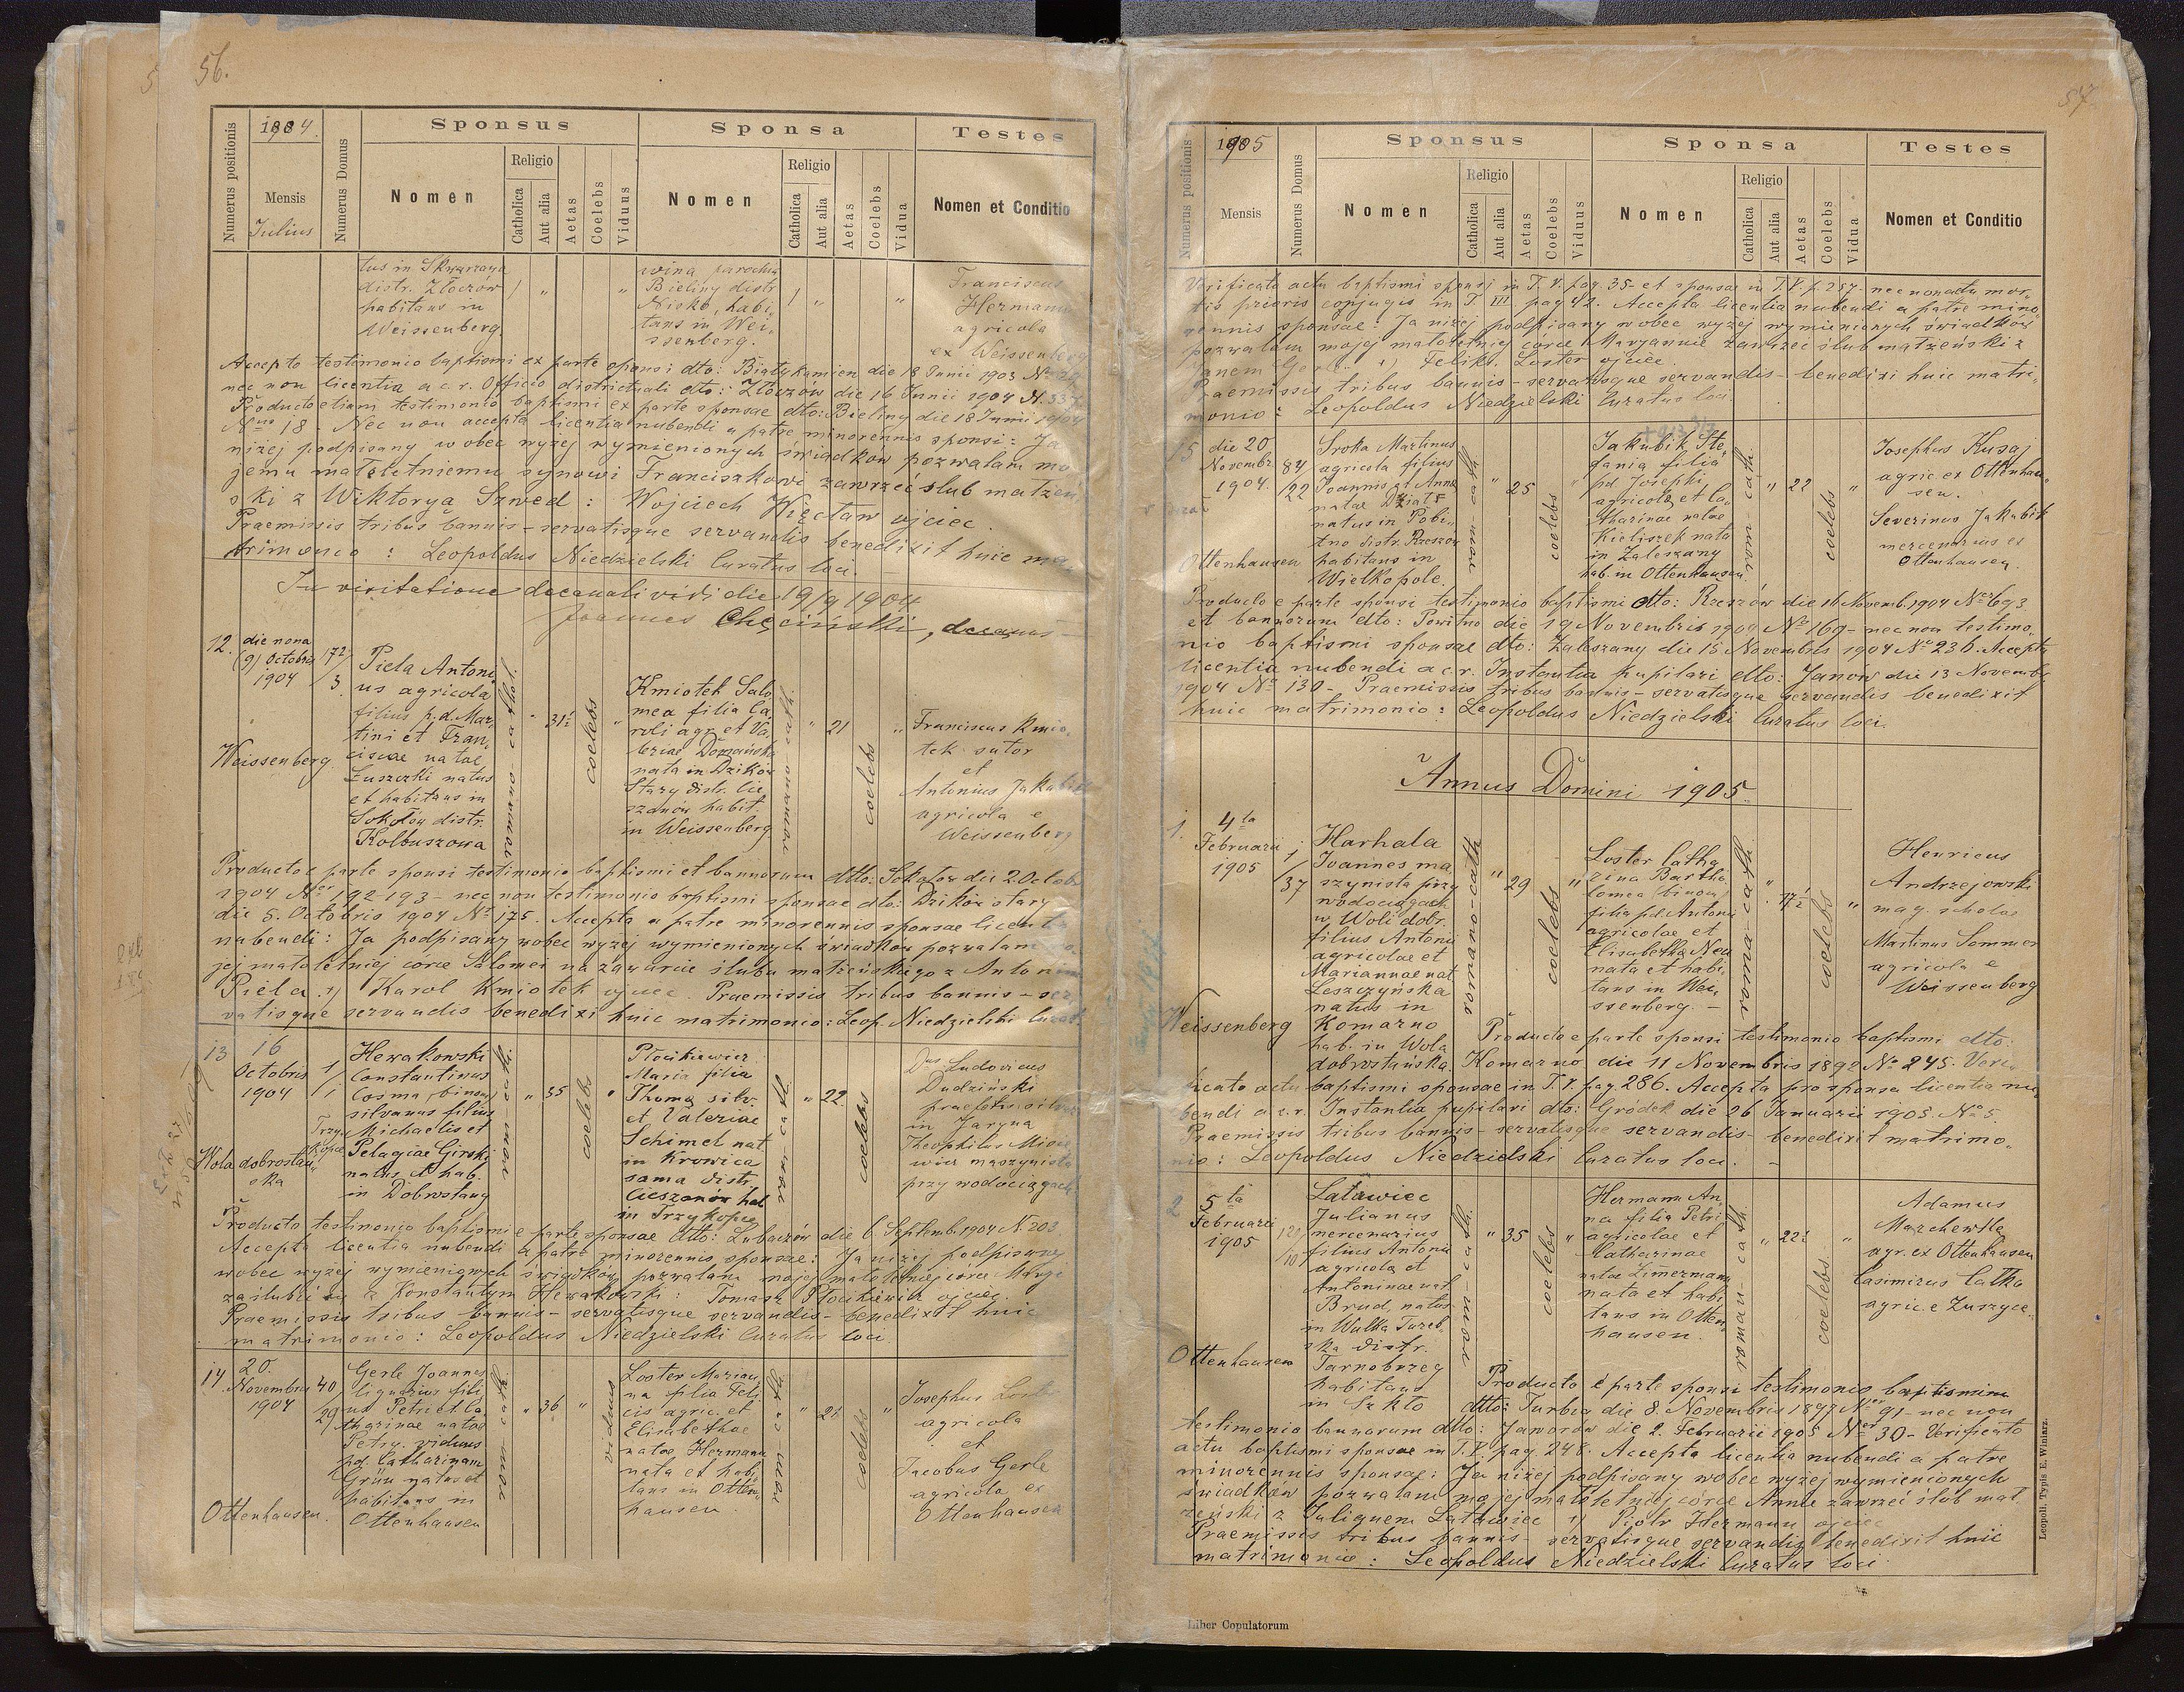 56.
1904.
Numerus positionis
Mensis
Julius
Numerus Domus
Sponsus
Nomen
Religio
Catholica
Aut alia
Aetas
Coelebs
Viduus
Sponsa
Nomen
Religio
Catholica
Aut alia
Aetas
Coelebs
Vidua
Testes
Nomen et Conditio
tus in Skwarzawa
distr. Złoczow
habitans in
Weissenberg.
wina parochia
Bieliny distr
Nisko, habi-
tans in Wei-
ssenberg.
Franciscus
Hermann
agricola
ex Weissenberg
Accepto testimonio baptismi ex parte sponsi dto: Białykamien die 18 Junii 1903
nec non licentia a c. r. Officio districtuali dto: Złoczów die 16 Junii 1904
Producto etiam testimonio baptismi ex parte sponsae dto: Bieliny die 18 Junii 1904
18 - Nec non accepta licentia nubendi a patre minorennis sponsi: Ja
niżej podpisany wobec wyżej wymienionych świadków pozwalam mo
jemu małoletniemu synowi Franciszkowi zawrzeć ślub małżeń
ski z Wiktoryą Szwed: Wojciech Więcław ojciec.
Praemissis tribus bannis - servatisque servandis benedixit huic ma
trimonio: Leopoldus Niedzielski Curatus loci.
In visitatione decanali vidi die 19/9 1904
Joannes Chęciński, decanus
12.
die nona
(9) Octobris
1904
172/
3.
Weissenberg
Piela Antoni
us agricola
filius p.d. Mar
tini et Fran
ciscae natae
Łuszczki natus
et habitans in
Sokołów distr.
Kolbuszowa
rom-cath.
" 31½
coelebs
"
Kmiotek Salo
mea filia Ca
roli agr. et Va
leriae Domańska
nata in Dzików
Stary distr. Cie
szanów habit.
in Weissenberg
"
21
coelebs
"
Franciscus Kmio
tek sutor
et
Antonius Jakubik
agricola e
Weissenberg
Producto e parte sponsi testimonio baptismi et bannorum dto: Sokołów die 2 Octob
1904 Ner 192 193 - nec non testimonio baptismi sponsae dto: Dzików stary
die 5. Octobris 1904 No 175. Accepta a patre minorennis sponsae licentia
nubendi: Ja podpisany wobec wyżej wymienionych świadków pozwalam mo
jej małoletniej córce Salomei na zawarcie ślubu małżeńskiego z Antonim
Piela Karol Kmiotek ojciec. Praemissis tribus bannis - ser
vatisque servandis benedixi huic matrimonio: Leop. Niedzielski Curat.
13
16
Octobris
1904
1/
1
Wola dobrostań
ska
Hewakowski
Constantinus
Cosma (binom)
silvanus filius
Michaelis et
Pelagiae Girski
natus et hab.
in Dobrostany
" 35
coelebs
"
Płocikiewicz
Maria filia
Thoma silv.
et Valeriae
Schimel nat
in Krowica
sama distr.
Cieszanów hab
in Trzykopce
" 22
coelebs
Dnus Ludovicus
Dudziński
praefectus silv
in Jaryna
Theophilus
maszynista
przy wodociągach
Producto testimonio baptismi e parte sponsae dto: Lubaczów die 6 Septemb. 1904 N. 203
Accepta licentia nubendi a patre minorennis sponsae: Ja niżej podpisany
wobec wyżej wymienionych świadków pozwalam mojej małoletniej córce Maryi
zaślubić się z Konstantym Hewakowski: Tomasz Płocikiewicz ojciec.
Praemissis tribus bannis - servatisque servandis - benedixit huic
matrimonio: Leopoldus Niedzielski Curatus loci.
14.
20.
Novembris
1904
40/
29
Ottenhausen.
Gerle Joannes
lignarius fili
us Petri et Ca
tharinae natae
Petry. viduus
pd. Catharinam
Grün natus et
habitans in
Ottenhausen
" 36 "
viduus
Loster Marian
na filia Feli
cis agric. et
Elisabethae
natae Hermann
nata et habi
tans in Otten
hausen
"
coelebs
"
Josephus Lost
agricola
et
Jacobus Gerle
agricola ex
Ottenhausen
57.
1905
Numerus positionis
Mensis
Numerus Domus
Sponsus
Nomen
Religio
Catholica
Aut alia
Aetas
Coelebs
Viduus
Sponsa
Nomen
Religio
Catholica
Aut alia
Aetas
Coelebs
Vidua
Testes
Nomen et Conditio
Verificato actu baptismi sponsi in T. V. pag. 35- et sponsae in T. V. p. 257. nec non actu mor
tis prioris conjugis in T. III. pag 42. Accepta licentia nubendi a patre mino
rennis sponsae: Ja niżej podpisany wobec wyżej wymienionych świadków
pozwalam mojej małoletniej córce Maryannie zawrzeć ślub małżeński z
Janem Gerle Feliks Loster ojciec.
Praemissis tribus bannis - servatisque servandis - benedixi huic matri
monio: Leopoldus Niedzielski Curatus loci.
15
die 20
Novembr.
1904.
84/
22
Ottenhausen
Sroka Martinus
agricola filius
Joannis et Anna
natae Działo
natus in Pobi
tno distr. Rzeszow
habitans in
Wielkopole.
" 25
coelebs
"
Jakubik Ste
fania filia
pd. Josephi
agricolae et Ca
tharinae natae
Kieliszek nata
in Zaleszany
hab. in Ottenhausen.
" 22
coelebs
"
Josephus Kusaj
agric. ex Ottenhau
sen.
Severinus Jakubik
mercenarius ex
Ottenhausen.
Producto e parte sponsi testimonio baptismi dto: Rzeszów die 16 Novemb. 1904 Ner 693
et bannorum dto: Powitno die 19 Novembris 1904 No 169 - nec non testimo
nio baptismi sponsae dto: Zaleszany die 15 Novembris 1904 No 236. Accepta
licentia nubendi a c. r. Instantia pupilari dto: Janów die 13 Novemb.
1904 No 130 - Praemissis tribus bannis - servatisque servandis benedixit
huic matrimonio: Leopoldus Niedzielski Curatus loci.
Annus Domini 1905.
1.
4ta
Februarii
1905
1/
37
Weissenberg
Harhala
Joannes ma
szynista przy
wodociągach
w Woli dobr.
filius Antonii
agricolae et
Mariannae nat
Leszczyńska
natus in
Komarno
hab. in Wola
dobrostańska.
" 29
coelebs
"
Loster Catha
rina Bartho
lomea (binom)
filia pd. Antonii
agricolae et
Elisabetha Neu
nata et habi
tans in Wei
ssenberg.
" 17½
coelebs
"
Henricus
Andrzejowski
mag. scholae
Martinus Sommer
agricola e
Weissenberg
Producto e parte sponsi testimonio baptismi dto:
Komarno die 11 Novembris 1892 No 245. Veri
ficato actu baptismi sponsae in T. V. pag. 286. Accepta pro sponsa licentia nu
bendi a c. r. Instantia pupilari dto: Gródek die 26 Januarii 1905. No 5.
Praemissis tribus bannis - servatisque servandis - benedixit matrimo
nio: Leopoldus Niedzielski Curatus loci.
2
5ta
Februarii
1905
120/
10
Ottenhausen
Latawiec
Julianus
mercenarius
filius Antonii
agricola et
Antoninae nat
Brud, natus
in Wulka Tureb
ska distr.
Tarnobrzeg
habitans
in Szkło
" 35
coelebs
"
Hermann An
na filia Petri
agricolae et
Catharinae
natae Zimermann
nata et habi
tans in Otten
hausen.
" 22½
coelebs
"
Adamus
Marchewka
agr. ex Ottenhausen
Casimirus Catka
agric. e Zuszyce.
Producto e parte sponsi testimonio baptismi
dto: Turbia die 8. Novembris 1897 Ner 91 - nec non
testimonio bannorum dto: Jaworów die 2. Februarii 1905 Ner 30 - Verificato
actu baptismi sponsae in T. V. pag. 248. Accepta licentia nubendi a patre
minorennis sponsae: Ja niżej podpisany wobec wyżej wymienionych
świadków pozwalam mojej małoletniej córce Annie zawrzeć ślub mał
żeński z Julianem Latawiec Piotr Hermann ojciec
Praemissis tribus bannis - servatisque servandis benedixit huic
matrimonio: Leopoldus Niedzielski Curatus loci
Leopoli. Typis E. Winiarz.
Liber Copulatorum